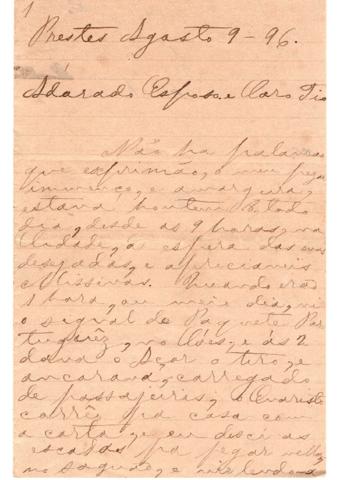 1
Prestes Agosto 9-96.
Adorado Esposo e Caro Tio
Não ha palavras
que exprimão, o meu pezar
immenço, e amargura,
estava, hontem 8, todo
dia, desde as 9 horas, na
Cidade, a espera das suas
desejadas, e apreciaveis
Missivas. Quando erão
1 hora, ou meio dia, vi
o signal de Paquete Por
tuguêz, no Cáes, e ás 2
dava o Açor o tiro, e
ancarava, carregado
de passajeiros, o Evaristo
carrêo pa casa com
a carta, e eu desci as
escadas pa pegar
no saguão, e